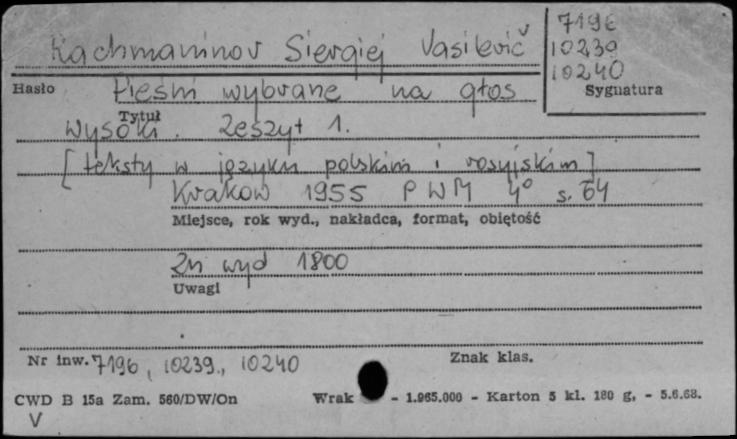 Rachmaninov Siergiej Vasilevič
7196
10239
10240
Hasło
Sygnatura
Pieśni wybrane na głos
Tytuł
wysoki. Zeszyt 1.
[teksty w języku polskim i rosyjskim]
Kraków 1955 PWM 4° s. 64
Miejsce, rok wyd., nakładca, format, objętość
Zn wyd 1800
Uwagi
Nr inw. 7196, 10239., 10240
Znak klas.
CWD B 15a Zam. 560/DW/On Wrak - 1.965.000 - Karton 5 kl. 180 g, - 5.6.68.
V